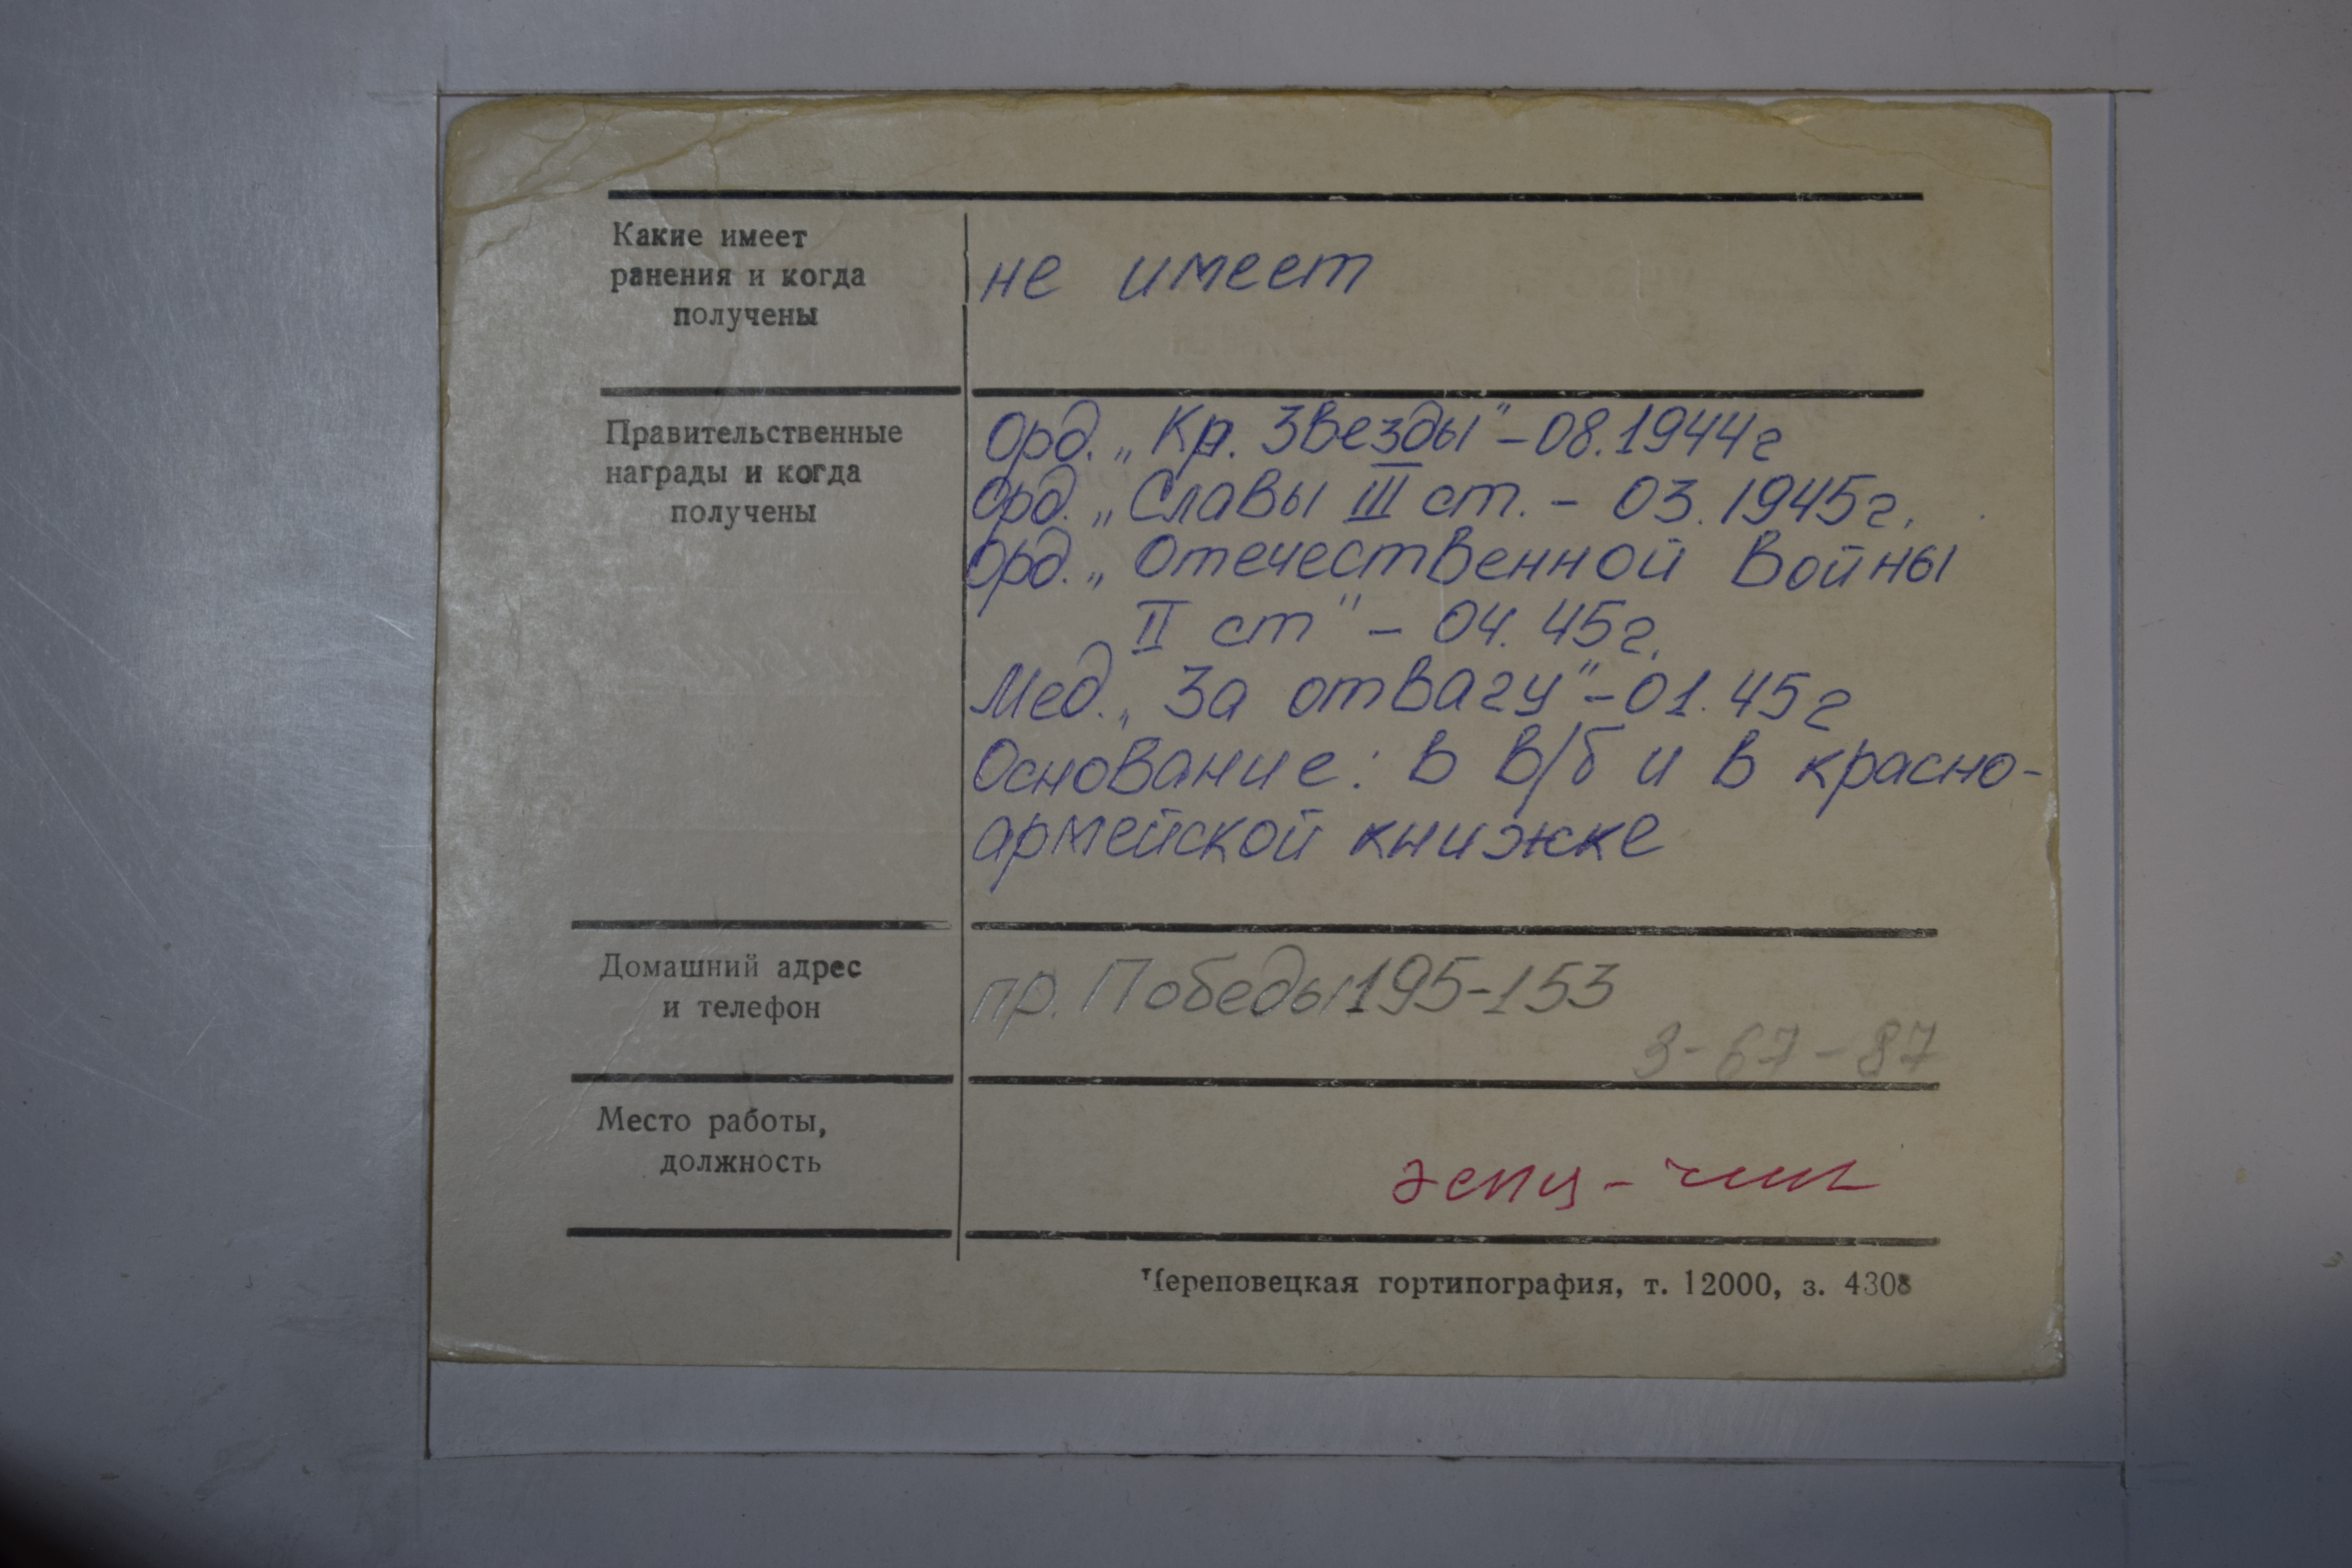 Какие имеет
ранения и когда
получены
не имеет
Правительственные
награды и когда
получены
Орд. „Кр. Звезды" – 08.1944г
Орд. „Славы III ст. – 03.1945г.
Орд. „Отечественной Войны
II ст" – 04.45г.
Мед. „За отвагу" – 01.45г
Основание: в в/б и в красно-
армейской книжке
Домашний адрес
и телефон
пр. Победы 195-153
3-67-87
Место работы,
должность
Череповецкая гортипография, т. 12000, з. 4308